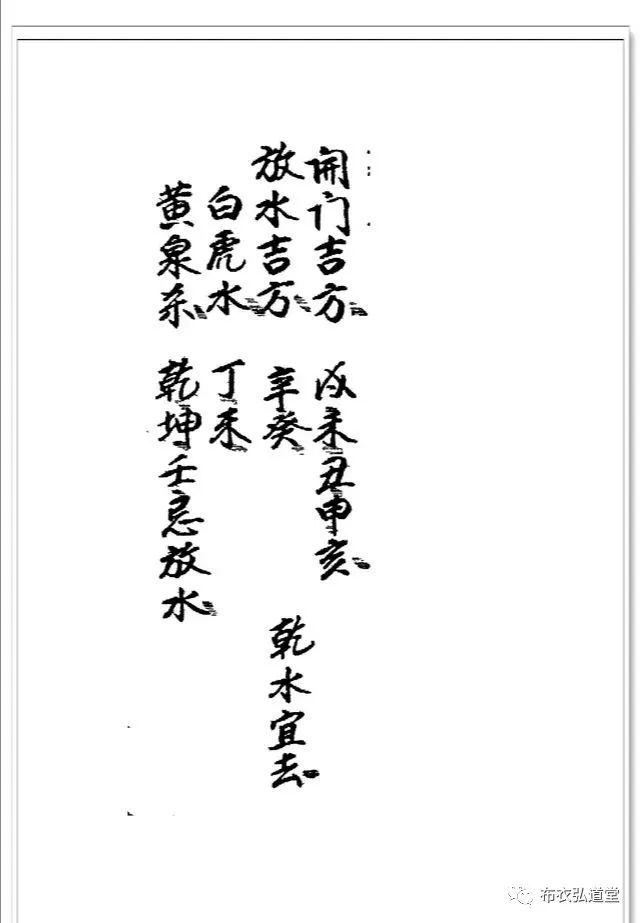 开门吉方、 戌未丑申亥。
放水吉方、 辛癸 乾水宜去。
白虎水、 丁未
黄泉杀、 乾坤壬忌放水、
布衣弘道堂